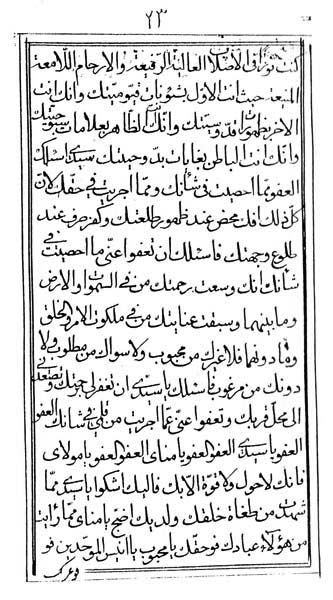 ٢٣
كنت نورا فى الاصلاب العالية الرفيعة والارحام اللامعة
المنيعة حيث انت الاول بشؤنات قيوميتك وانك انت
الاخر بظهورات قدوسيتك وانك انت الظاهر بعلامات سبوحيتك
وانك انت الباطن بغايات بدوحيتك سيدى اسئلك
العفو بما احصيت فى شانك ومما اجريت فى حقك لان
كل ذلك افك محض عند ظهور طلعتك وكفر صرف عند
طلوع وجهتك فاسئلك ان تعفوا عنى ما احصيت فى
شانك انك وسعت رحمتك من فى السموات والارض
وما بينهما وسبقت عنايتك من فى ملكوت الامر والخلق
وما دونهما فلا غيرك من محبوب ولا سواك من مطلوب ولا
دونك من مرغوب فاسئلك يا سيدى ان تغفر لى جريرتك وتصعدنى
الى محل قربك وتعفوا عنى عما اجريت من قلمى فى شانك العفو
العفو يا سيدى العفو العفو يا مناى العفو العفو يا مولاى
فانك لا حول ولا قوة الا بك فاليك اشكوا يا سيدى مما
شهدت من طغاة خلقك ولديك اضج يا مناى مما رايت
من هؤلاء عبادك فوحقك يا محبوب يا انيس الموحدين فو
فوعزتك